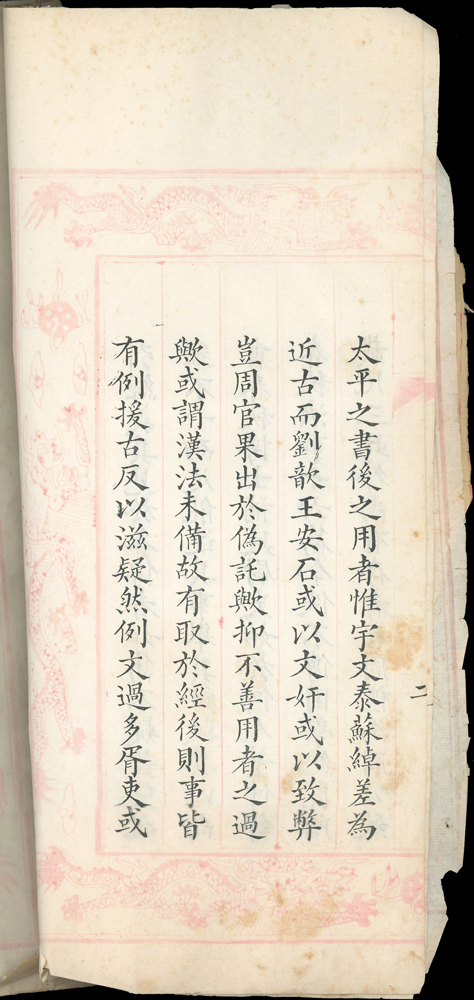 太平之書後之用者惟宇文泰蘇綽差為
近古而劉歆王安石或以文奸或以致弊
豈周官果出於偽託歟抑不善用者之過
歟或謂漢法未備故有取於經後則事皆
有例援古反以滋疑然例文過多胥吏或
二